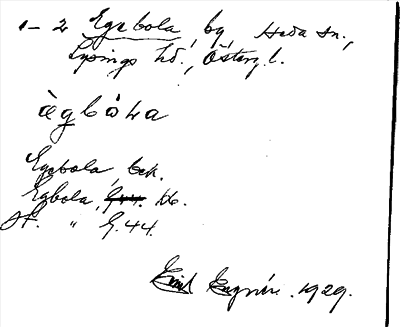 1–2 Egebola, by, Heda sn.,
Lysings hd., Östergl.
ägbòla
Egebola, bek.
Egbola, G.44. tk.
St. " G.44.
Emil Engvin. 1929.